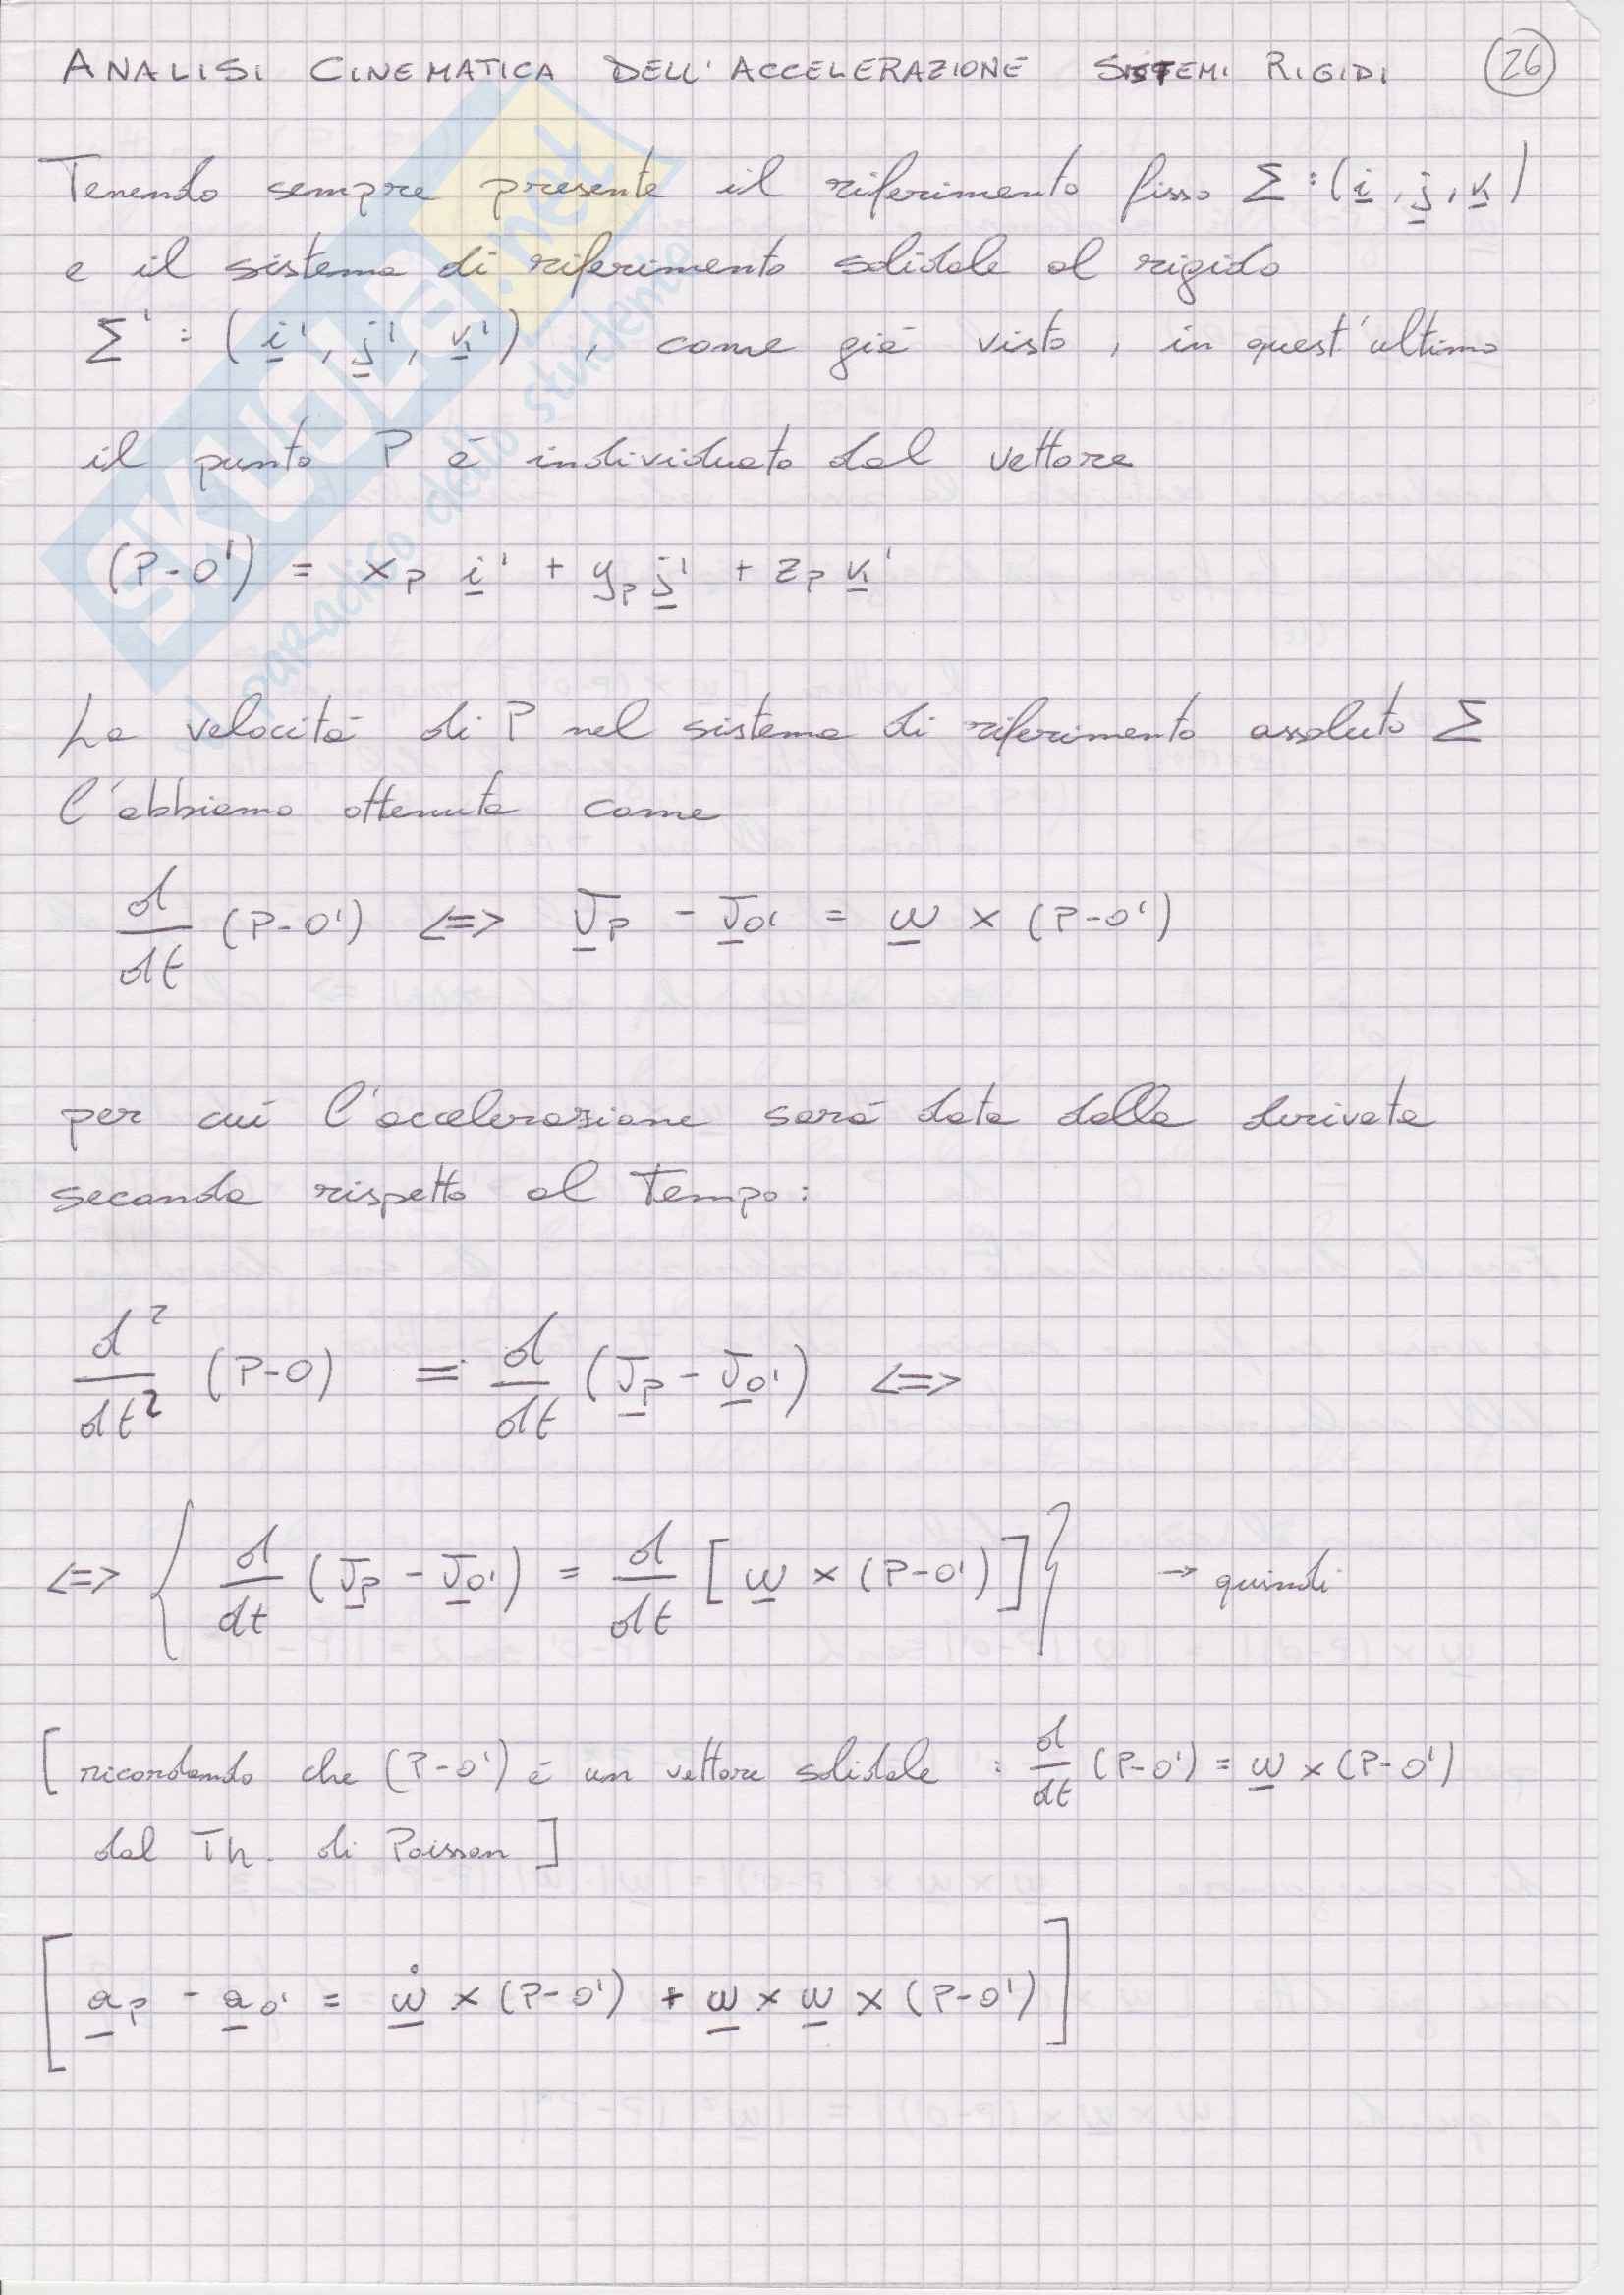 ANALISI CINEMATICA DELL'ACCELERAZIONE SISTEMI RIGIDI 26
Tenendo sempre presente il riferimento fisso Σ:(i, j, k)
e il sistema di riferimento solidale al rigido
Σ' : (i', j', k') , come già visto, in quest'ultimo
il punto P è individuato dal vettore
(P-O') = xp i' + yp j' + zp k'
La velocità di P nel sistema di riferimento assoluto Σ
l'abbiamo ottenuta come
d/dt (P-O') <=> vp - vo' = ω × (P-O')
per cui l'accelerazione sarà data dalla derivata
seconda rispetto al tempo:
d²/dt² (P-O) = d/dt (vp - vo') <=>
<=> { d/dt (vp - vo') = d/dt [ω × (P-O')] } → quindi
[ricordando che (P-O') è un vettore solidale : d/dt (P-O') = ω × (P-O')
dal Th. di Poisson]
[ap - ao' = ω̇ × (P-O') + ω × ω × (P-O')]
SKUOLA.net
il paradiso dello studente